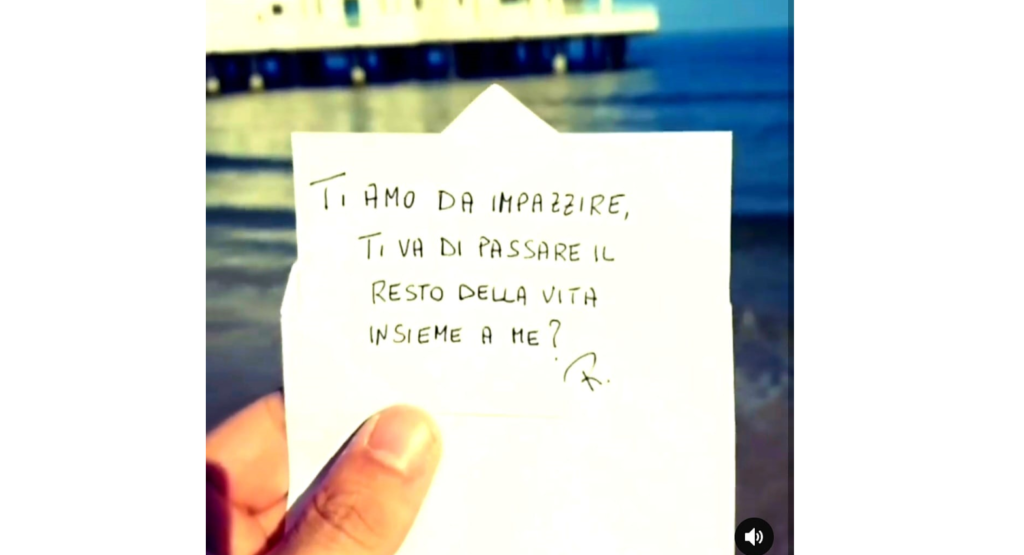 TI AMO DA IMPAZZIRE,
TI VA DI PASSARE IL
RESTO DELLA VITA
INSIEME A ME?
R.